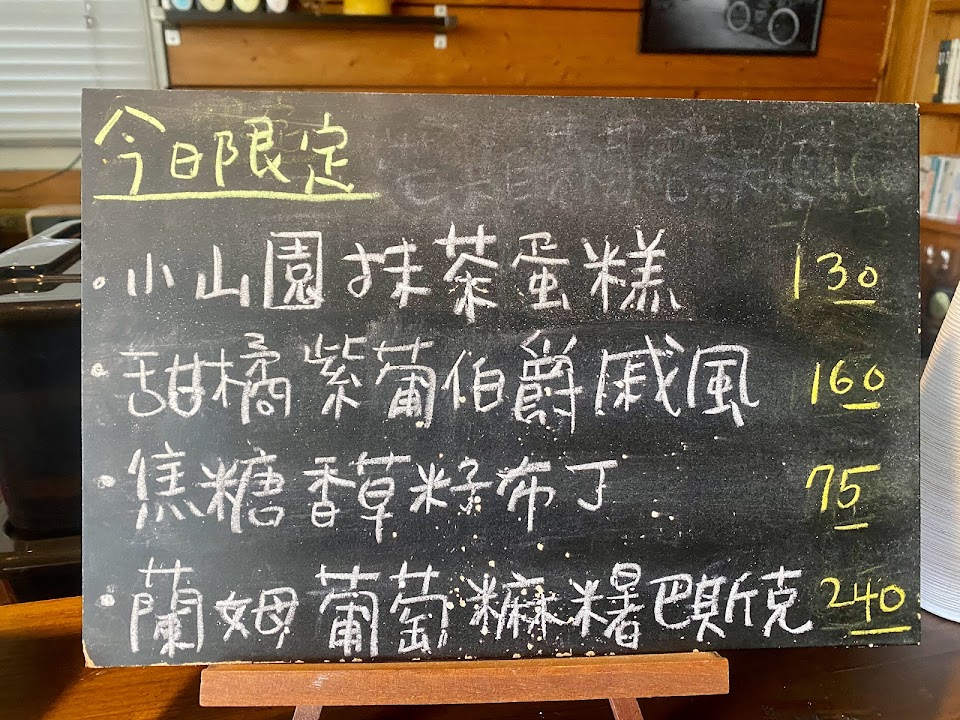 今日限定
小山園抹茶蛋糕 130
甜橘紫葡伯爵戚風 160
焦糖香草籽布丁 75
蘭姆葡萄麻糬巴斯克 240